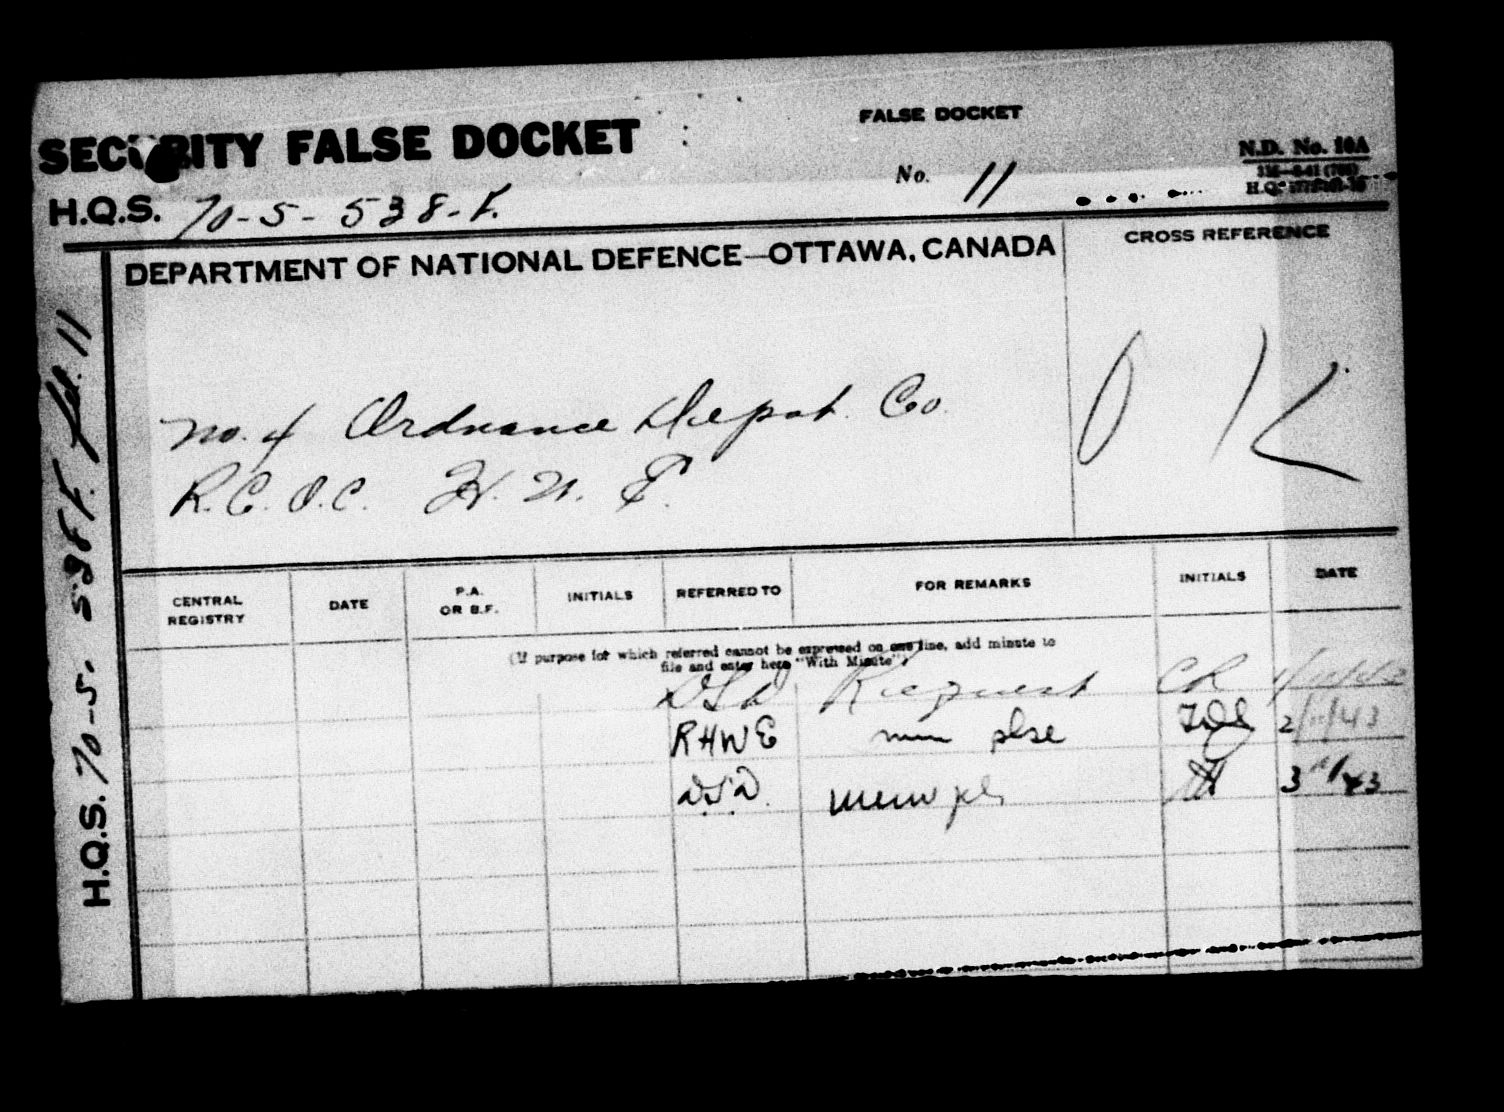 SECURITY FALSE DOCKET
FALSE DOCKET
No. 11
N.D. No. 10A
H.Q.S. 70-5-538-F.
DEPARTMENT OF NATIONAL DEFENCE—OTTAWA, CANADA
CROSS REFERENCE
No. 4 Ordnance Depot Co.
R.C.O.C.
CENTRAL REGISTRY DATE P.A. OR B.F. INITIALS REFERRED TO FOR REMARKS INITIALS DATE
(If purpose for which referred cannot be expressed on one line, add minute to
file and enter here "With Minute")
DSD Request CR
RHWE min plse 2/11/43
D.S.D.
H.Q.S. 70-5-538 F. fd. 11